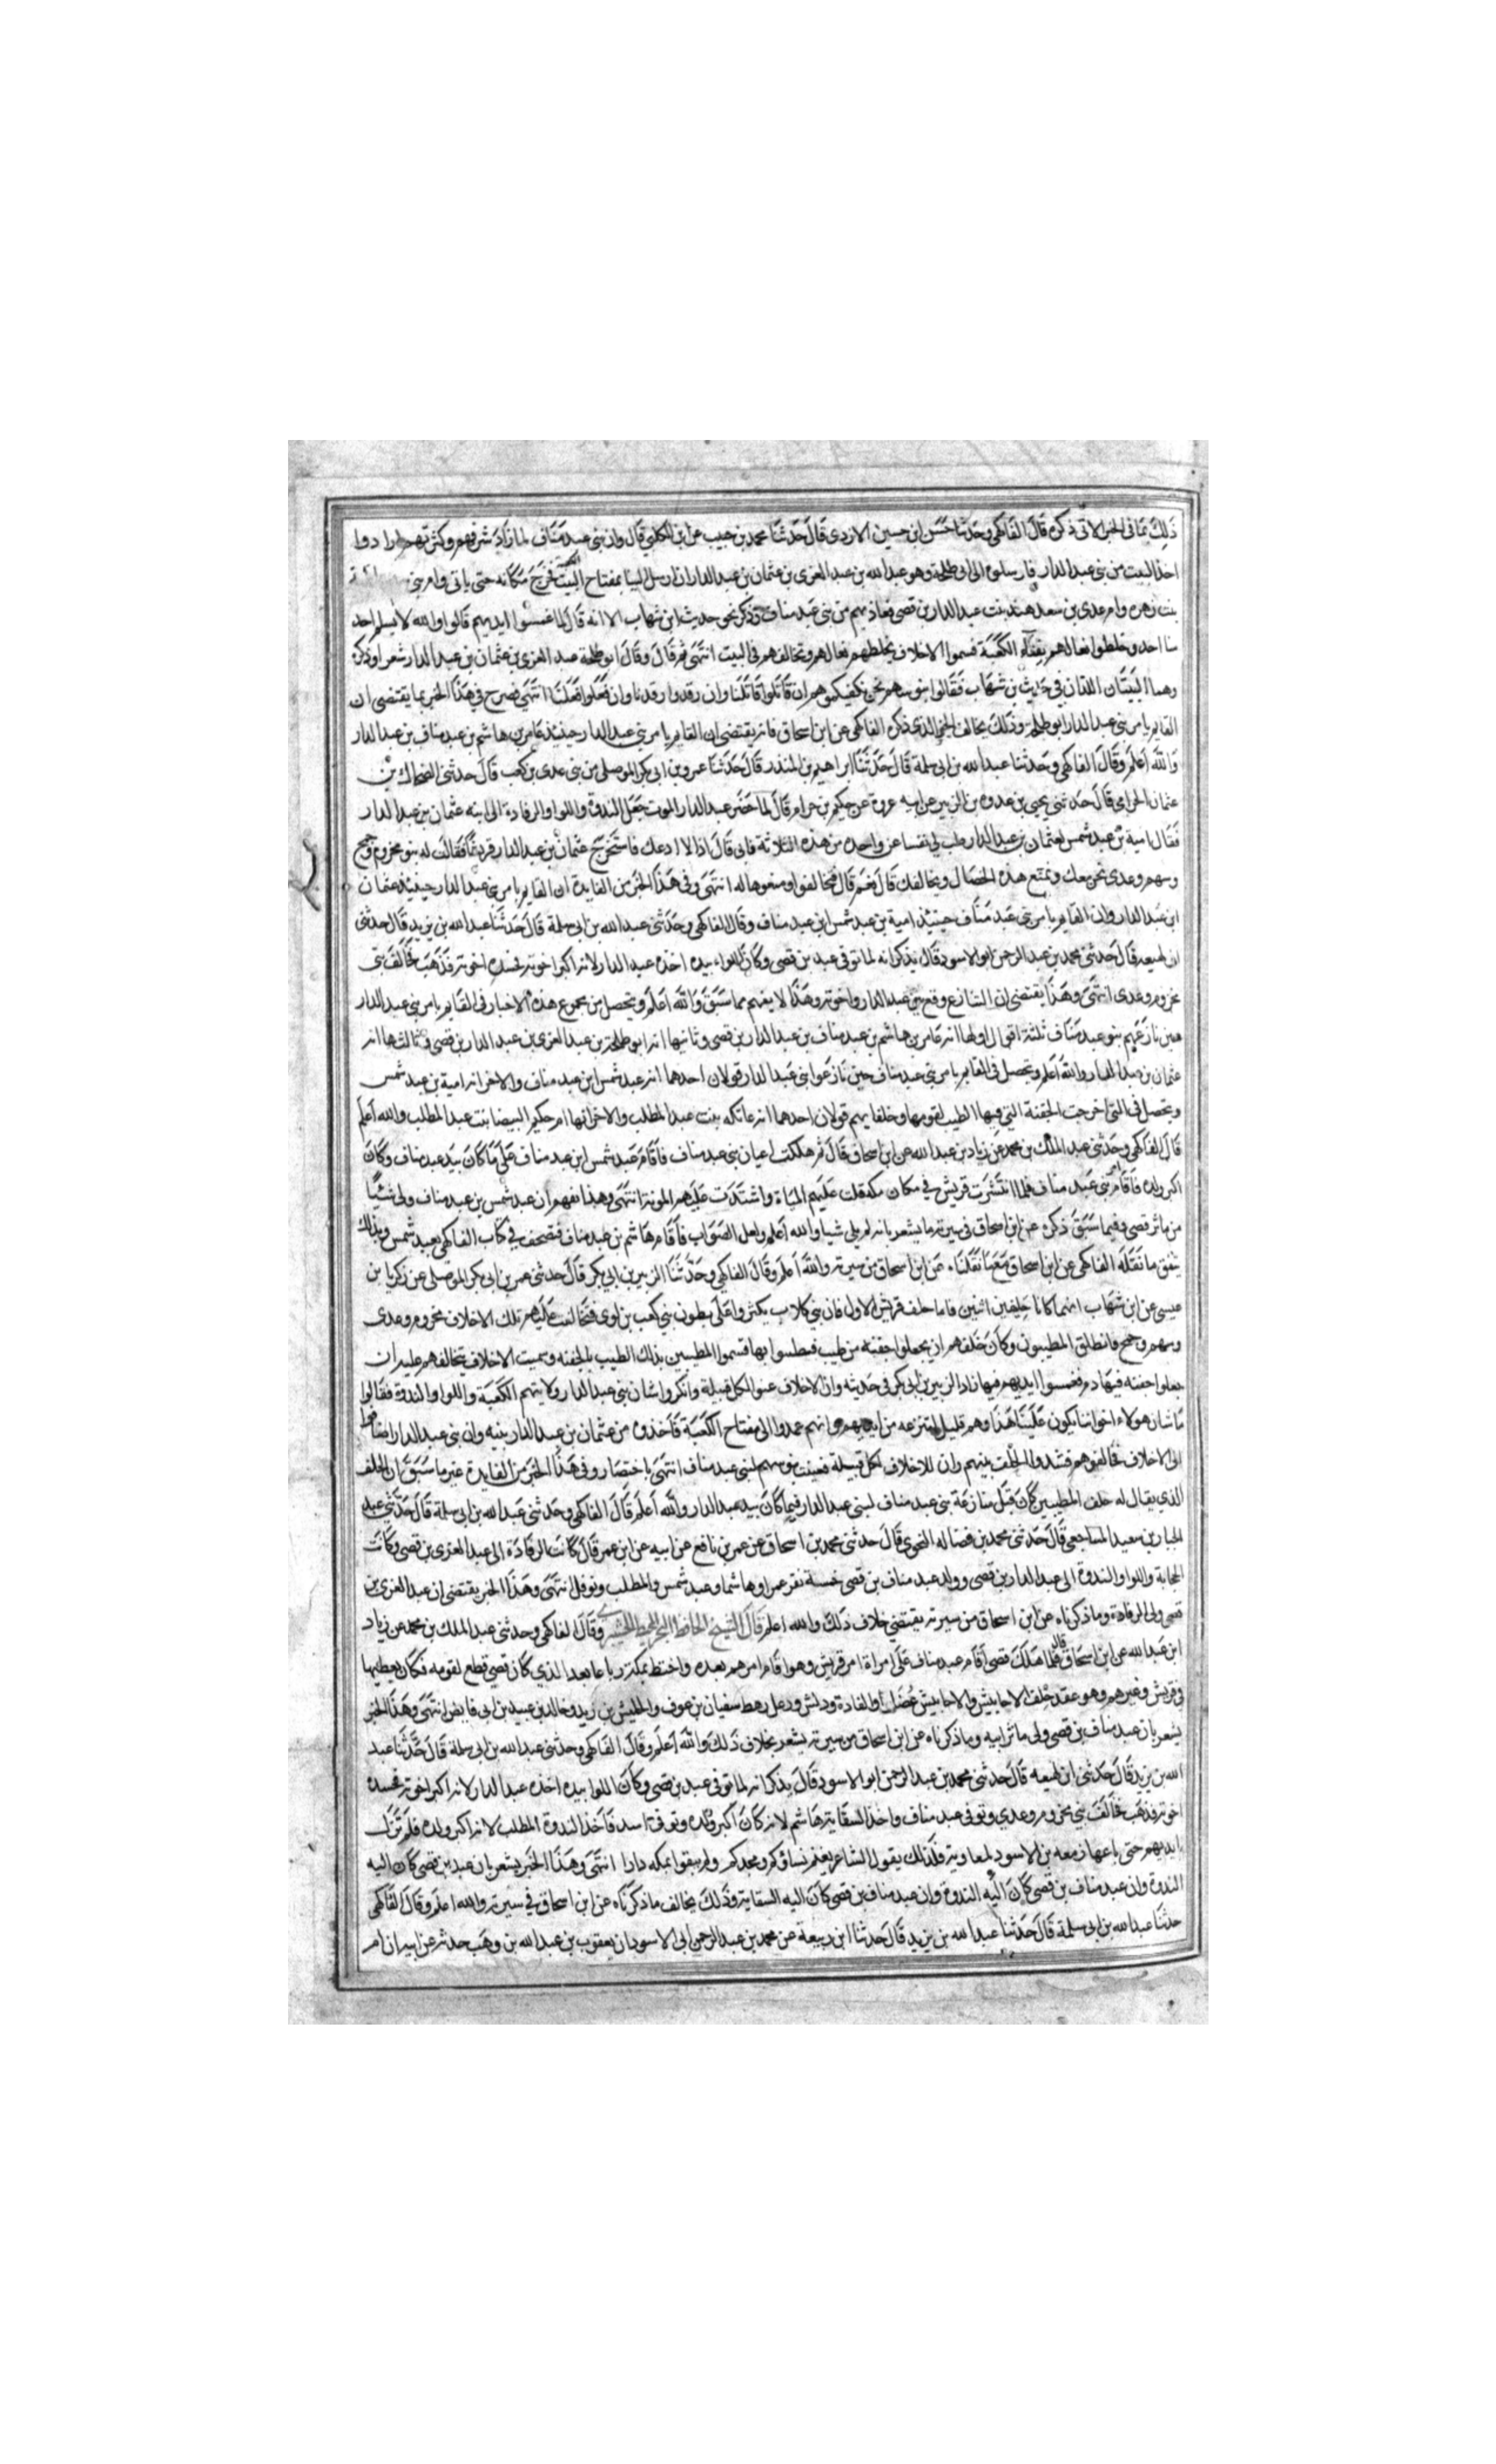 ذلك بما في الخبر الاتي ذكره قال الفاكهي وحدثنا حسن ابن حسين الازدي قال حدثنا محمد بن حبيب عن ابن الكلبي قال وان بني عبد مناف لما زاد شرفهم وكثرتهم ارادوا
اخذ البيت من بني عبد الدار فارسلوه الى ابي طلحة وهو عبد الله بن عبد العزى بن عثمان بن عبد الدار ان ارسل الينا بمفتاح البيت فخرج مكانه حتى ياتي وام بني
بنت زهره وام عدي بن سعد هند بنت عبد الدار بن قصي فعاذ بهم من بني عبد مناف وذكر نحو حديث ابن شهاب الا انه قال لما غمسوا ايديهم قالوا والله لا يسلم احد
منا احد وخلطوا نعالهم بفناء الكعبة فسموا الاحلاف بخلطهم نعالهم وتحالفهم في البيت انتهى ثم قال وقال ابو طلحة عبد العزى بن عثمان بن عبد الدار شعرا وذكره
وهما البيتان اللذان في حديث بن شهاب فقالوا بنو سهم نحن نكفيكموهم ان قاتلوا قاتلنا وان رقدوا رقدنا وان فعلوا فعلنا انتهى فصرح في هذا الخبر بما يقتضي ان
القايم بامر بني عبد الدار ابو طلحة وذلك يخالف الخبر الذي ذكره الفاكهي عن ابن اسحاق فانه يقتضي ان القايم بامر بني عبد الدار حينيذ عامر بن هاشم بن عبد مناف بن عبد الدار
والله اعلم وقال الفاكهي وحدثنا عبد الله بن ابي سلمة قال حدثنا ابراهيم بن المنذر قال حدثنا عمر بن ابي بكر الموصلي من بني عدي بن كعب قال حدثني الضحاك بن
عثمان الحزامي قال حدثني يحيى بن عروه بن الزبير عن ابيه عروة عن حكيم بن حزام قال لما حضر عبد الدار الموت جعل الندوة واللوا والرفادة الى ابنه عثمان بن عبد الدار
فقال امية بن عبد شمس لعثمان بن عبد الدار طب لي نفسا عن واحدة من هذه الثلاثة فابى قال اذا لا ادعك فاستخرج عثمان بن عبد الدار قريشا فقالت له بنو مخزوم وجمح
وسهم وعدي نحن معك ونمنع هذه الخصال ونحالفك قال نعم قال فتحالفوا ومنعوها له انتهى وفي هذا الخبر من الفايدة ان القايم بامر بني عبد الدار حينيذ عثمان
ابن عبد الدار وان القايم بامر بني عبد مناف حينيذ امية بن عبد شمس ابن عبد مناف وقال الفاكهي وحدثني عبد الله بن ابي سلمة قال حدثنا عبد الله بن يزيد قال حدثني
ابن لهيعه قال حدثني محمد بن عبد الرحمن ابو الاسود قال يذكر انه لما توفي عبد بن قصي وكان اللواء بيده اخذه عبد الدار لانه اكبر اخوته فحسده اخوته فذهب فحالف بني
مخزوم وعدي انتهى وهذا يقتضي ان التنازع وقع بين عبد الدار واخوته وهذا لا يفهم مما سبق والله اعلم ويحصل من مجموع هذه الاخبار في القايم بامر بني عبد الدار
حين نازعهم بنو عبد مناف ثلثة اقوال اولها انه عامر بن هاشم بن عبد مناف بن عبد الدار بن قصي وثانيها انه ابو طلحة بن عبد العزى بن عبد الدار بن قصي وثالثها انه
عثمان بن عبد الدار والله اعلم ويحصل في القايم بامر بني عبد مناف حين نازعوا بني عبد الدار قولان احدهما انه عبد شمس ابن عبد مناف والاخر انه امية بن عبد شمس
ويحصل في التي اخرجت الجفنة التي فيها الطيب لقومها وحلفايهم قولان احدهما انه عاتكه بنت عبد المطلب والاخر انها ام حكيم البيضا بنت عبد المطلب والله اعلم
قال الفاكهي وحدثني عبد الملك بن محمد عن زياد بن عبد الله عن ابن اسحاق قال ثم هلكت اعيان بني عبد مناف فاقام عبد شمس ابن عبد مناف على ما كان بيد عبد مناف وكان
اكبر ولده فاقام بني عبد مناف فلما انتشرت قريش في مكان مكه قلت عليهم المياة واشتدت عليهم المونة انتهى وهذا يفهم ان عبد شمس بن عبد مناف ولى شيئا
من ماثر قصي وفيما سبق ذكره عن ابن اسحاق في سيرته ما يشعر بانه لم يلي شيا والله اعلم ولعل الصواب فاقام هاشم بن عبد مناف فتصحف في كتاب الفاكهي بعبد شمس وبذلك
يتفق ما نقله الفاكهي عن ابن اسحاق مع ما نقلناه عن ابن اسحاق من سيرته والله اعلم وقال الفاكهي وحدثنا الزبير بن ابي بكر قال حدثني عمر بن ابي بكر الموصلي عن زكريا بن
عيسى عن ابن شهاب انهما كانا حلفين اثنين فاما حلف قريش الاول فان بني كلاب بكثر واعلى بطون بني كعب بن لوي فتحالفت عليهم تلك الاحلاف مخزوم وعدي
وسهم وجمح فانطلق المطيبون وكان حلفهم ان يجعلوا جفنه من طيب فطلسوا بها قسموا المطيبين بذلك الطيب بالجفنه وسميت الاحلاف بتحالفهم عليه ان
جعلوا جفنه فيها دم فغمسوا ايديهم فيها زاد الزبير بن ابي بكر في حديثه وان الاحلاف عبوا لكل قبيلة وانكروا شان بني عبد الدار ولايتهم الكعبة واللوا والندوة فقالوا
ما شان هولاء اخواننا يكون علينا هذا وهم قليل لننتزعه من ايديهم وانهم عمدوا الى مفتاح الكعبة فاخذوه من عثمان بن عبد الدار بنيه وان بني عبد الدار انضافوا
الى الاحلاف فحالفوهم فشدوا الحلف بينهم وان للاحلاف لكل قبيلة فعينت بنو سهم لبني عبد مناف انتهى باختصار وفي هذا الخبر من الفايدة غير ما سبق ان الحلف
الذي يقال له حلف المطيبين كان قبل منازعة بني عبد مناف لبني عبد الدار فيما كان بيد عبد الدار والله اعلم قال الفاكهي وحدثني عبد الله بن ابي سلمة قال حدثني عبد
الجبار بن سعيد المساحقي قال حدثني محمد بن فضاله النحوي قال حدثني محمد بن اسحاق عن عمر بن نافع عن ابيه عن ابن عمر قال كانت الرفادة الى عبد العزى بن قصي وكانت
الحجابة واللوا والندوة الى عبد الدار بن قصي وولد عبد مناف بن قصي خمسة نفر عمرا وهاشما وعبد شمس والمطلب ونوفل انتهى وهذا الخبر يقتضي ان عبد العزى بن
قصي ولى الرفادة وما ذكرناه عن ابن اسحاق من سيرته يقتضي خلاف ذلك والله اعلم قال الشيخ الحافظ وقال الفاكهي وحدثني عبد الملك بن محمد عن زياد
ابن عبد الله عن ابن اسحاق قال فلما هلك قصي اقام عبد مناف على امراة امر قريش وهو اقام امرهم بعده واختط بمكة رباعا بعد الذي كان قصي قطع لقومه فكان يعطيها
في قريش وغيرهم وهو عقد حلف الاحابيش والاحابيش عضل والقادة وديش ورعل رهط سفيان بن عوف والحليس بن زيد وخالد بن عبيد بن ابي فايض انتهى وهذا الخبر
يشعر بان عبد مناف بن قصي ولى ماثر ابيه وما ذكرناه عن ابن اسحاق من سيرته يشعر بخلاف ذلك والله اعلم وقال الفاكهي وحدثني عبد الله بن ابي سلمة قال حدثنا عبد
الله بن يزيد قال حدثني ابن لهيعه قال حدثني محمد بن عبد الرحمن ابو الاسود قال يذكر انه لما توفي عبد بن قصي وكان اللوا بيده اخذه عبد الدار لانه اكبر اخوته فحسده
اخوته فذهب فحالف بني مخزوم وعدي وتوفي عبد مناف واخذ السقاية هاشم لانه كان اكبر ولده وتوفي اسد فاخذ الندوة المطلب لانه اكبر ولده فلم تزل
بايديهم حتى باعها زمعه بن الاسود لمعاوية فلذلك يقول الشاعر نساؤكم ومجدكم ولم يبقوا بمكه دارا انتهى وهذا الخبر يشعر بان عبد بن قصي كان اليه
الندوة وان عبد مناف بن قصي كان اليه الندوة وان عبد مناف بن قصي كان اليه السقاية وذلك يخالف ما ذكرناه عن ابن اسحاق في سيرته والله اعلم وقال الفاكهي
حدثنا عبد الله بن ابي سلمة قال حدثنا عبد الله بن يزيد قال حدثنا ابن ربيعة عن محمد بن عبد الرحمن ابي الاسود ان يعقوب بن عبد الله بن وهب حدثه عن ابيه ان ام